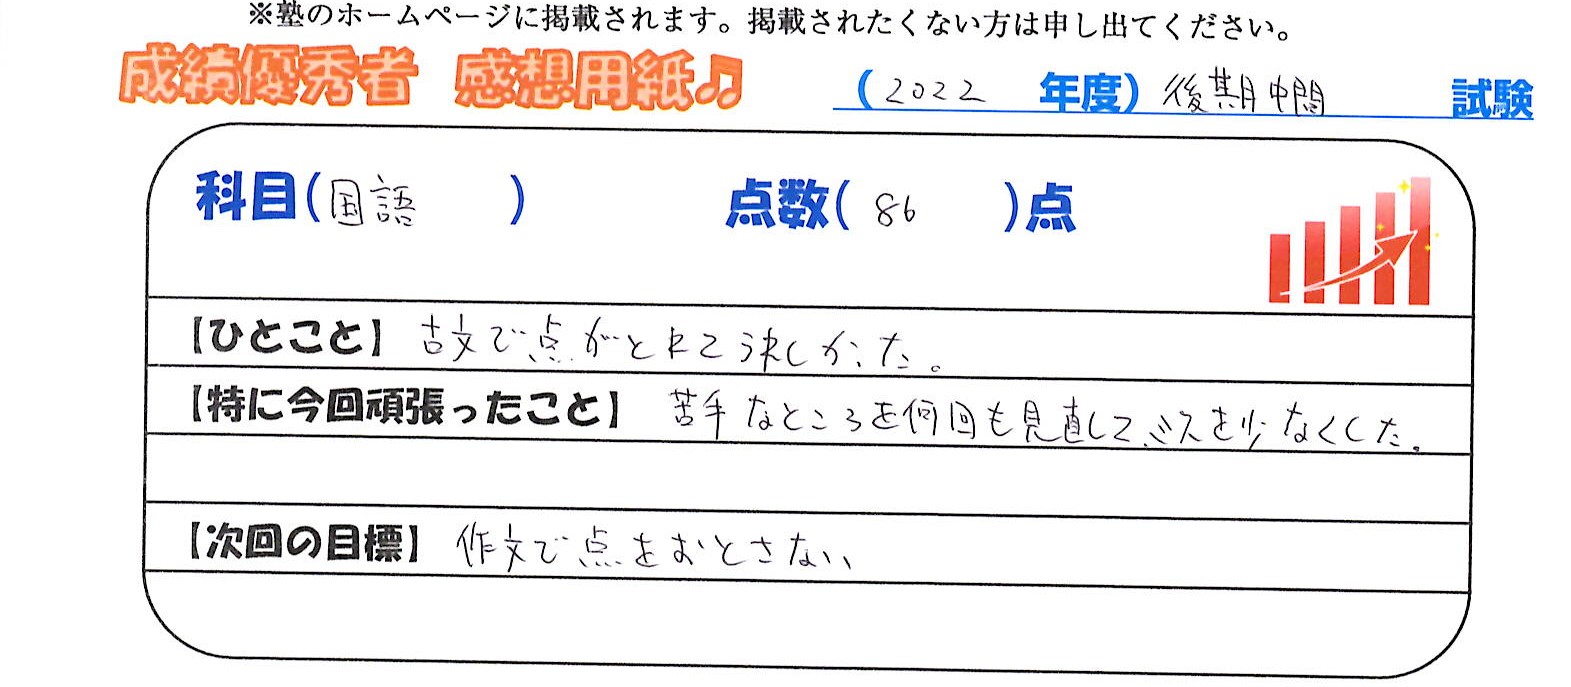 ※塾のホームページに掲載されます。掲載されたくない方は申し出てください。
成績優秀者 感想用紙♫ (2022 年度)後期中間 試験
科目(国語 ) 点数(86 )点
【ひとこと】古文で点がとれてうれしかった。
【特に今回頑張ったこと】苦手なところを何回も見直してミスを少なくした。
【次回の目標】作文で点をおとさない